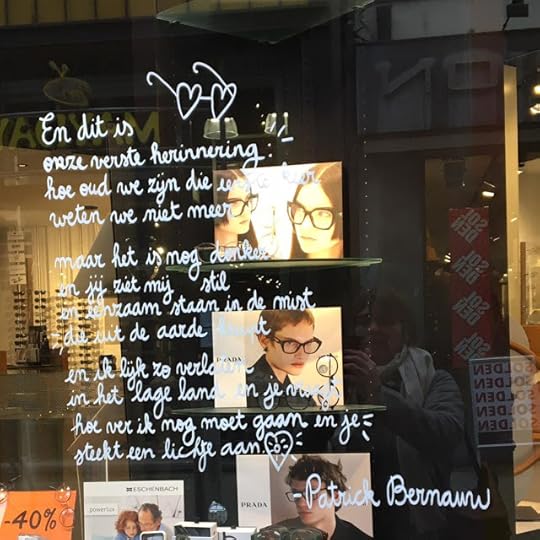 En dit is
onze verste herinnering:
hoe oud we zijn die eerste keer
weten we niet meer
maar het is nog donker
en jy ziet mij stil
en eenzaam staan in de mist
die uit de aarde
en ik lijk zo verlaten
in het lage land en je vraagt
hoe ver ik nog moet gaan en je
steekt een lichtje aan
-Patrick Bernauw
PRADA
PRADA
ESCHENBACH
powerlux
-40%
SOLDEN
SOLDEN
SOLDEN
SOLDEN